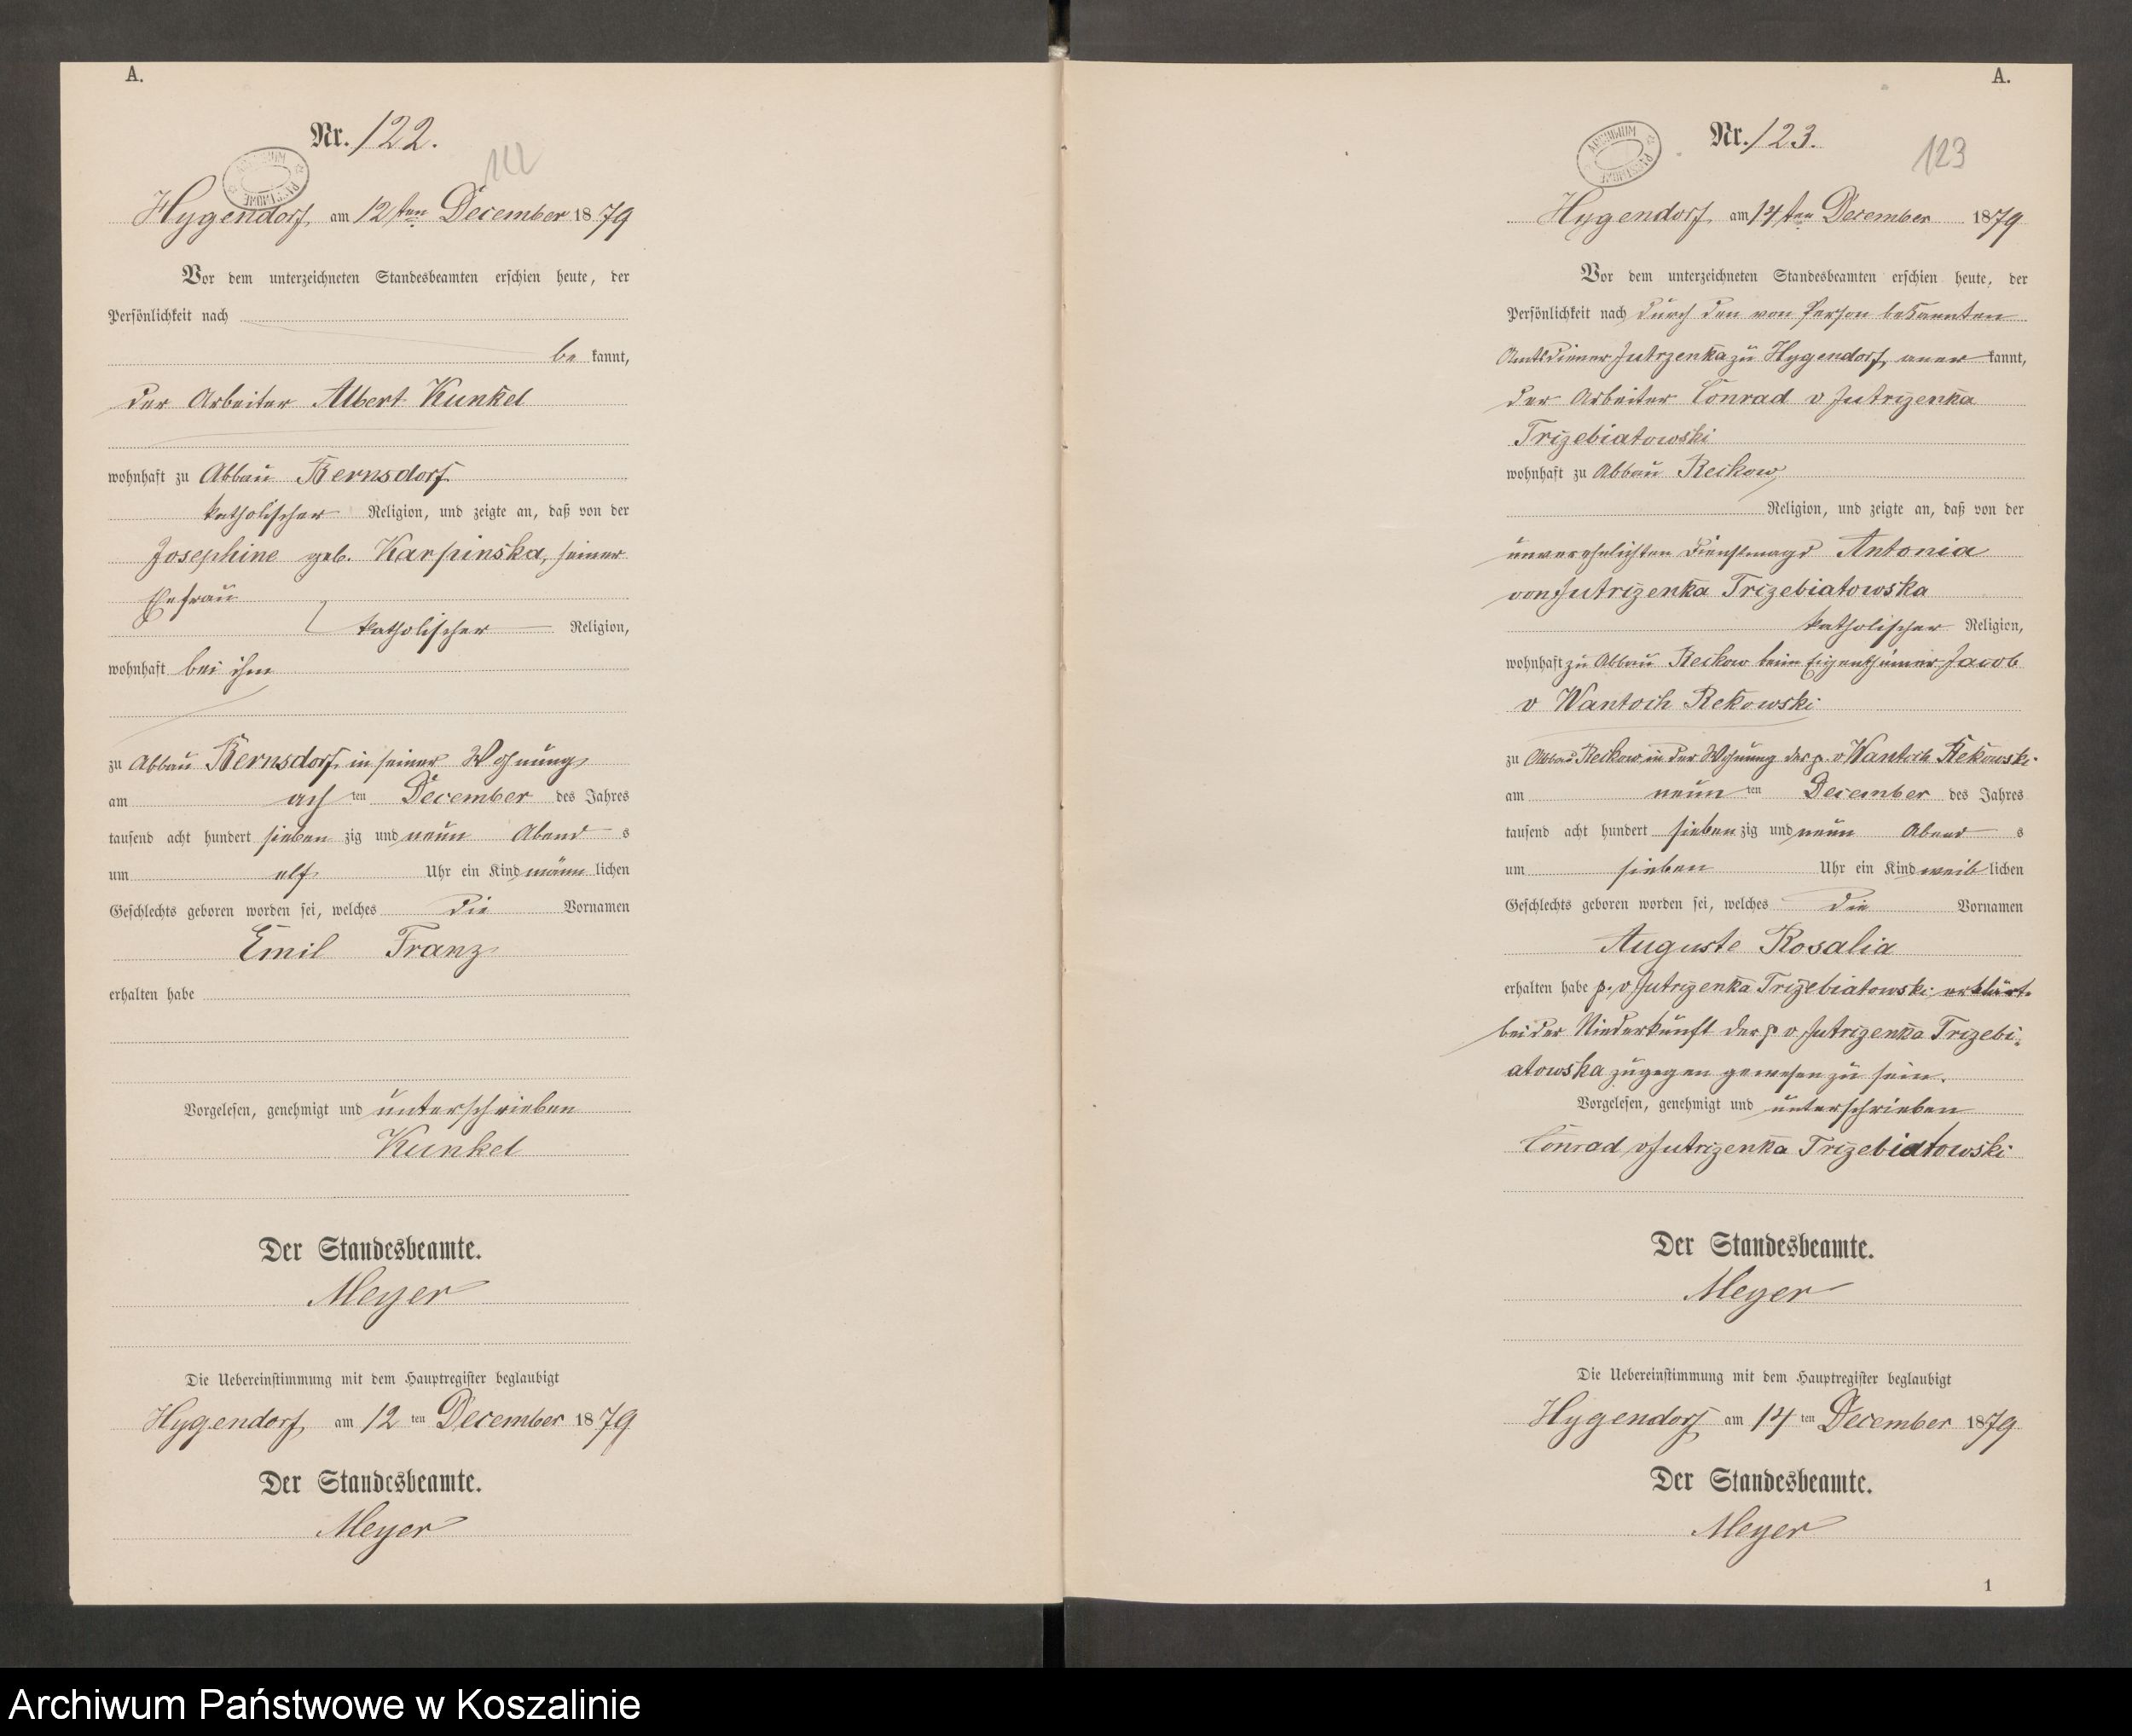 A.
Nr. 122.
122
Hygendorf, am 12ten December 1879
Vor dem unterzeichneten Standesbeamten erschien heute, der
Persönlichkeit nach
be kannt,
der Arbeiter Albert Kunkel
wohnhaft zu Abbau Bernsdorf
katholischer Religion, und zeigte an, daß von der
Josephine geb. Karpinska, seiner
Ehefrau
katholischer Religion,
wohnhaft bei ihm
zu Abbau Bernsdorf, in seiner Wohnung,
am ach ten December des Jahres
tausend acht hundert sieben zig und neun Abend s
um elf Uhr ein Kind männ lichen
Geschlechts geboren worden sei, welches die Vornamen
Emil Franz
erhalten habe
Vorgelesen, genehmigt und unterschrieben
Kunkel
Der Standesbeamte.
Meyer
Die Uebereinstimmung mit dem Hauptregister beglaubigt
Hygendorf, am 12 ten December 1879
Der Standesbeamte.
Meyer
A.
Nr. 123.
123
Hygendorf, am 14ten December 1879
Vor dem unterzeichneten Standesbeamten erschien heute, der
Persönlichkeit nach durch den von Person bekannten
Amtsdiener Jutrzenka zu Hygendorf, aner kannt,
der Arbeiter Conrad v Jutrizenka
Trizebiatowski
wohnhaft zu Abbau Reckow
Religion, und zeigte an, daß von der
unverehelichten Dienstmagd Antonia
von Jutrizenka Trizebiatowska
katholischer Religion,
wohnhaft zu Abbau Reckow beim Eigenthümer Jacob
v Wantoch Rekowski
zu Abbau Reckow in der Wohnung des p. v Wantoch Rekowski
am neun ten December des Jahres
tausend acht hundert sieben zig und neun Abend s
um sieben Uhr ein Kind weib lichen
Geschlechts geboren worden sei, welches die Vornamen
Auguste Rosalia
erhalten habe p. v Jutrizenka Trizebiatowski erklärt
bei der Niederkunft der p v Jutrizenka Trizebi-
atowska zugegen gewesen zu sein.
Vorgelesen, genehmigt und unterschrieben
Conrad v Jutrizenka Trizebiatowski
Der Standesbeamte.
Meyer
Die Uebereinstimmung mit dem Hauptregister beglaubigt
Hygendorf am 14 ten December 1879
Der Standesbeamte.
Meyer
1
Archiwum Państwowe w Koszalinie